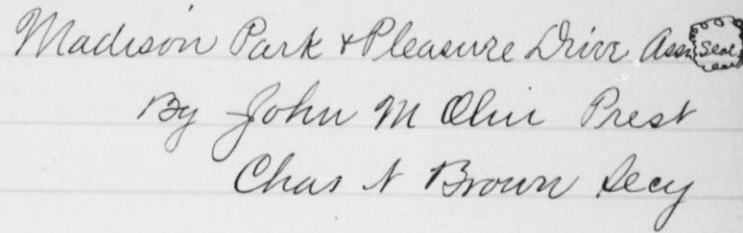 Madison Park & Pleasure Drive Assn Seal
By John M Olin Prest
Chas N Brown Secy